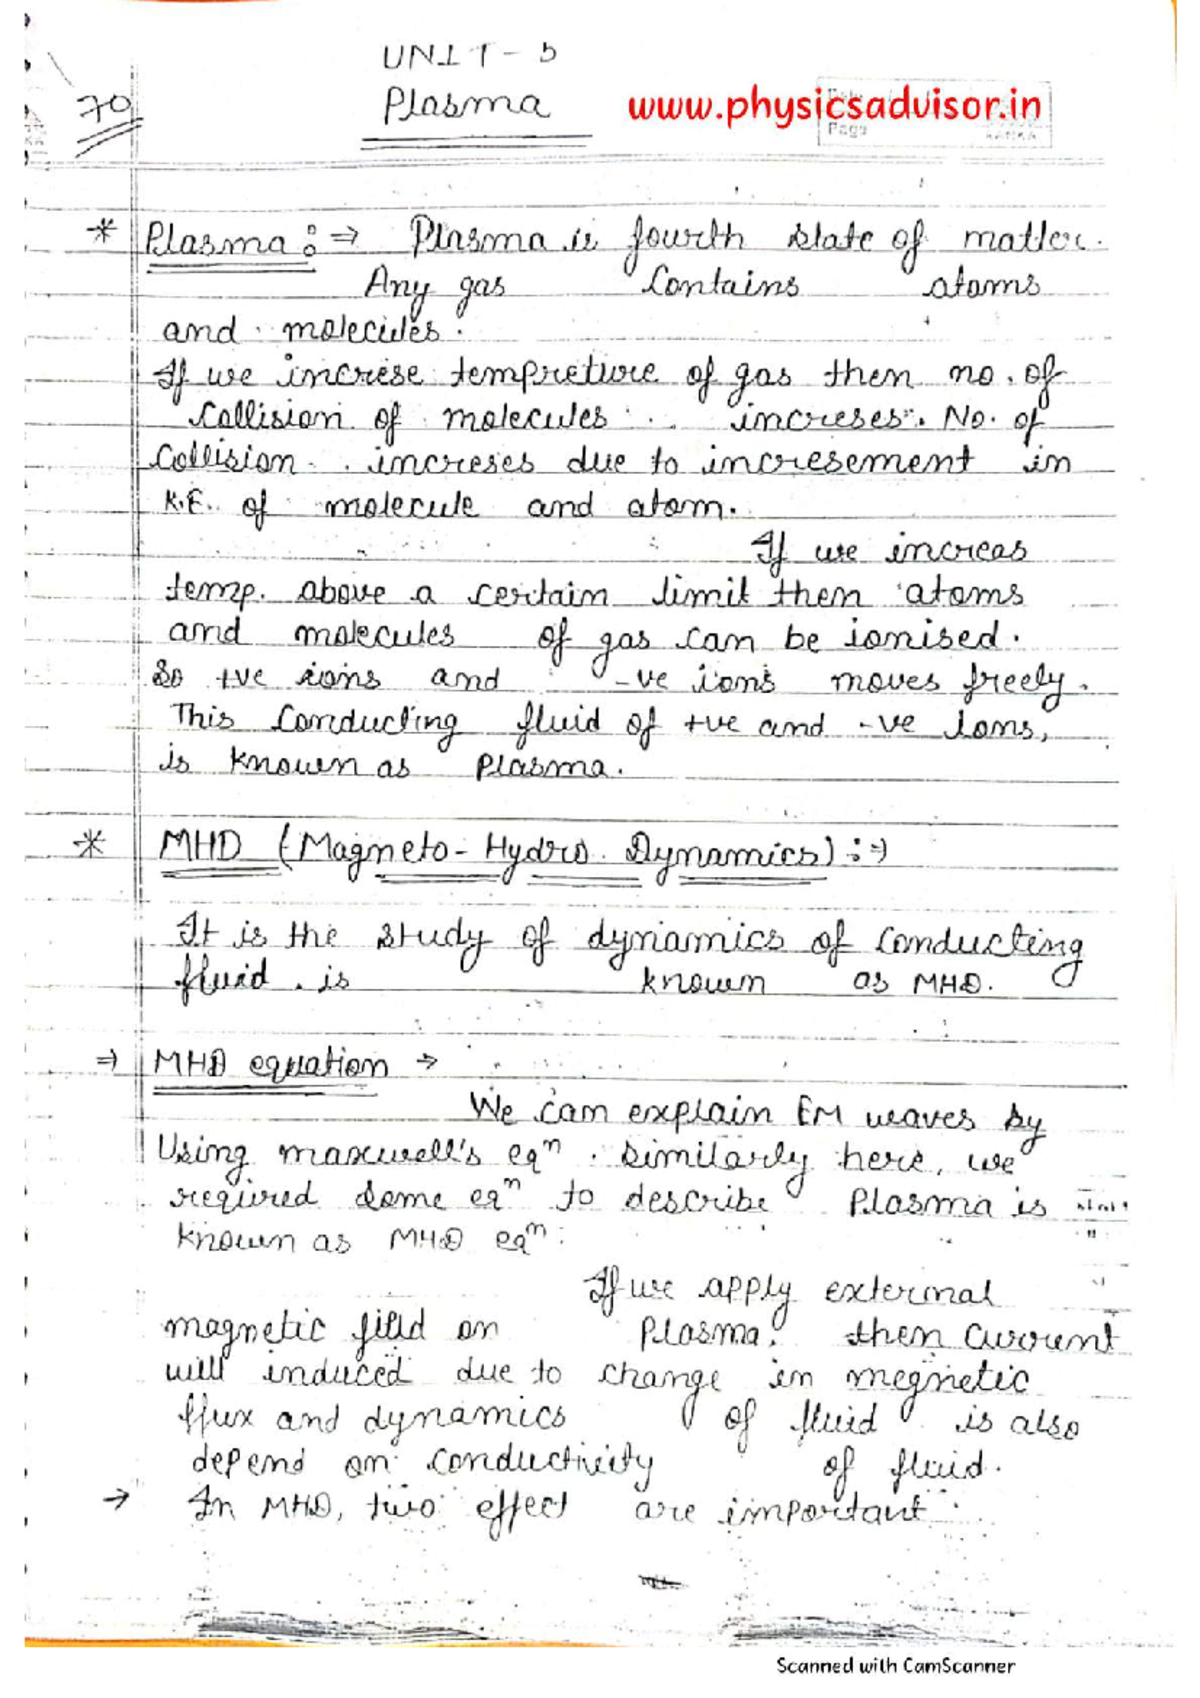 UNIT - 5
70
Plasma
www.physicsadvisor.in
Page
* Plasma :⇒ Plasma is fourth state of matter.
Any gas Contains atoms
and molecules.
If we increse tempreture of gas then no. of
Collision of molecules increses. No. of
Collision increses due to incresement in
K.E. of molecule and atom.
If we increas
temp. above a certain limit then atoms
and molecules of gas can be ionised.
So +ve ions and -ve ions moves freely.
This Conducting fluid of +ve and -ve Ions,
is known as Plasma.
* MHD (Magneto-Hydro Dynamics) :→
It is the study of dynamics of Conducting
fluid. is known as MHD.
⇒ MHD equation →
We can explain EM waves by
Using maxwell's eqⁿ. Similarly here, we
required some eqⁿ to describe Plasma is
known as MHD eqⁿ.
If we apply external
magnetic filld on Plasma. then Current
will induced due to change in megnetic
flux and dynamics of fluid is also
depend on Conductivity of fluid.
→ In MHD, two effect are important
Scanned with CamScanner